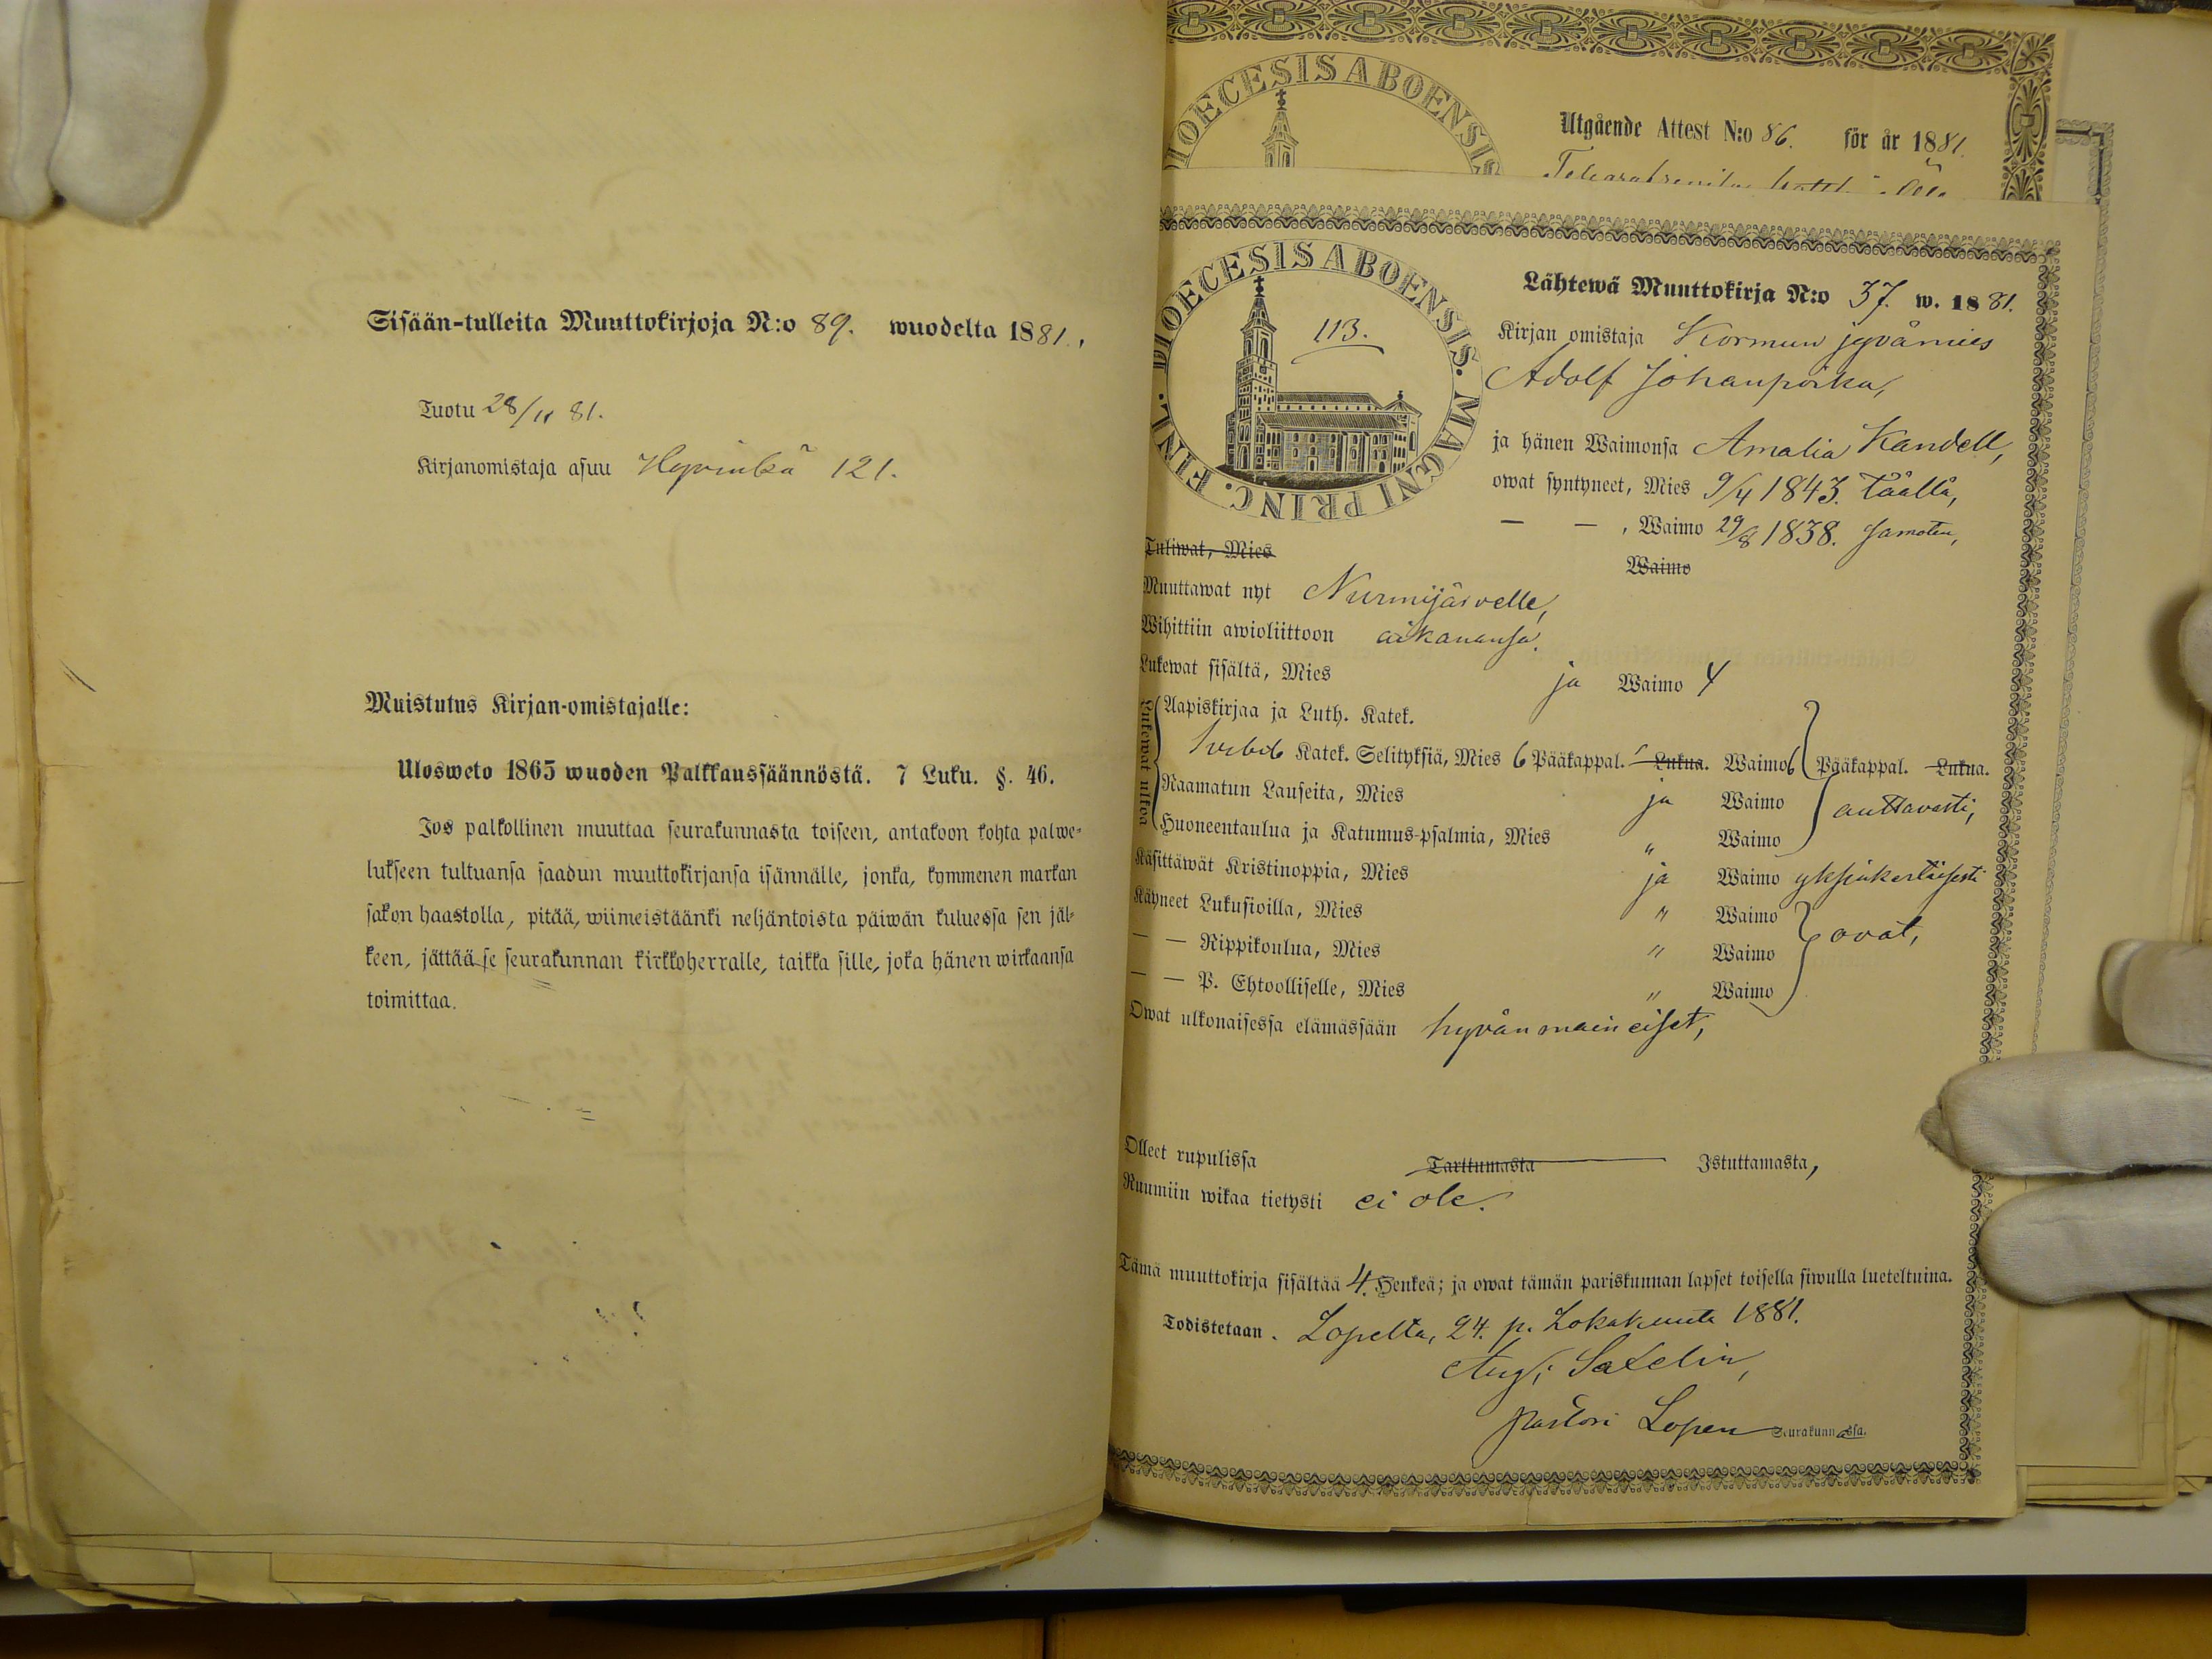 Sisään-tulleita Muuttokirjoja N:o 89. wuodelta 1881.
Tuotu 28/11 81.
Kirjanomistaja asuu Hyvinkä 121.
Muistutus Kirjan-omistajalle:
Ulosweto 1865 wuoden Palkkaussäännöstä. 7 Luku. §. 46.
Jos palkollinen muuttaa seurakunnasta toiseen, antakoon kohta palwe-
lukseen tultuansa saadun muuttokirjansa isännälle, jonka, kymmenen markan
sakon haastolla, pitää, wiimeistäänki neljäntoista päiwän kuluessa sen jäl-
keen, jättää se seurakunnan kirkkoherralle, taikka sille, joka hänen wirkaansa
toimittaa.
DIOECESIS ABOENSIS
Utgående Attest N:o 86. för år 1881.
DIOECESIS ABOENSIS. MAGNI PRINC. FINL.
113.
Lähtewä Muuttokirja N:o 37. w. 1881.
Kirjan omistaja Kormun jyvämies
Adolf Johanpoika,
ja hänen Waimonsa Amalia Kandell,
owat syntyneet, Mies 9/4 1843. täällä,
— — , Waimo 29/8 1838. samoten,
Tuliwat, Mies
Waimo
Muuttawat nyt Nurmijärvelle,
Wihittiin awioliittoon aikanansa.
Lukewat sisältä, Mies ja Waimo y
Lukewat ulkoa
Aapiskirjaa ja Luth. Katek.
Katek. Selityksiä, Mies 6 Pääkappal. Lukua. Waimo 6 Pääkappal. Lukua.
Raamatun Lauseita, Mies ja Waimo auttavasti,
Huoneentaulua ja Katumus-psalmia, Mies " Waimo
Käsittäwät Kristinoppia, Mies ja Waimo yksinkertaisesti
Käyneet Lukusioilla, Mies " Waimo
— — Rippikoulua, Mies " Waimo ovat,
— — P. Ehtoolliselle, Mies " Waimo
Owat ulkonaisessa elämässään hyvänmaineiset,
Olleet rupulissa Tarttumasta Istuttamasta,
Ruumiin wikaa tietysti ei ole.
Tämä muuttokirja sisältää 4. Henkeä; ja owat tämän pariskunnan lapset toisella siwulla lueteltuina.
Todistetaan. Lopelta, 24. p. Lokakuuta 1881.
Aug;
Pastori Lopen Seurakunnassa.